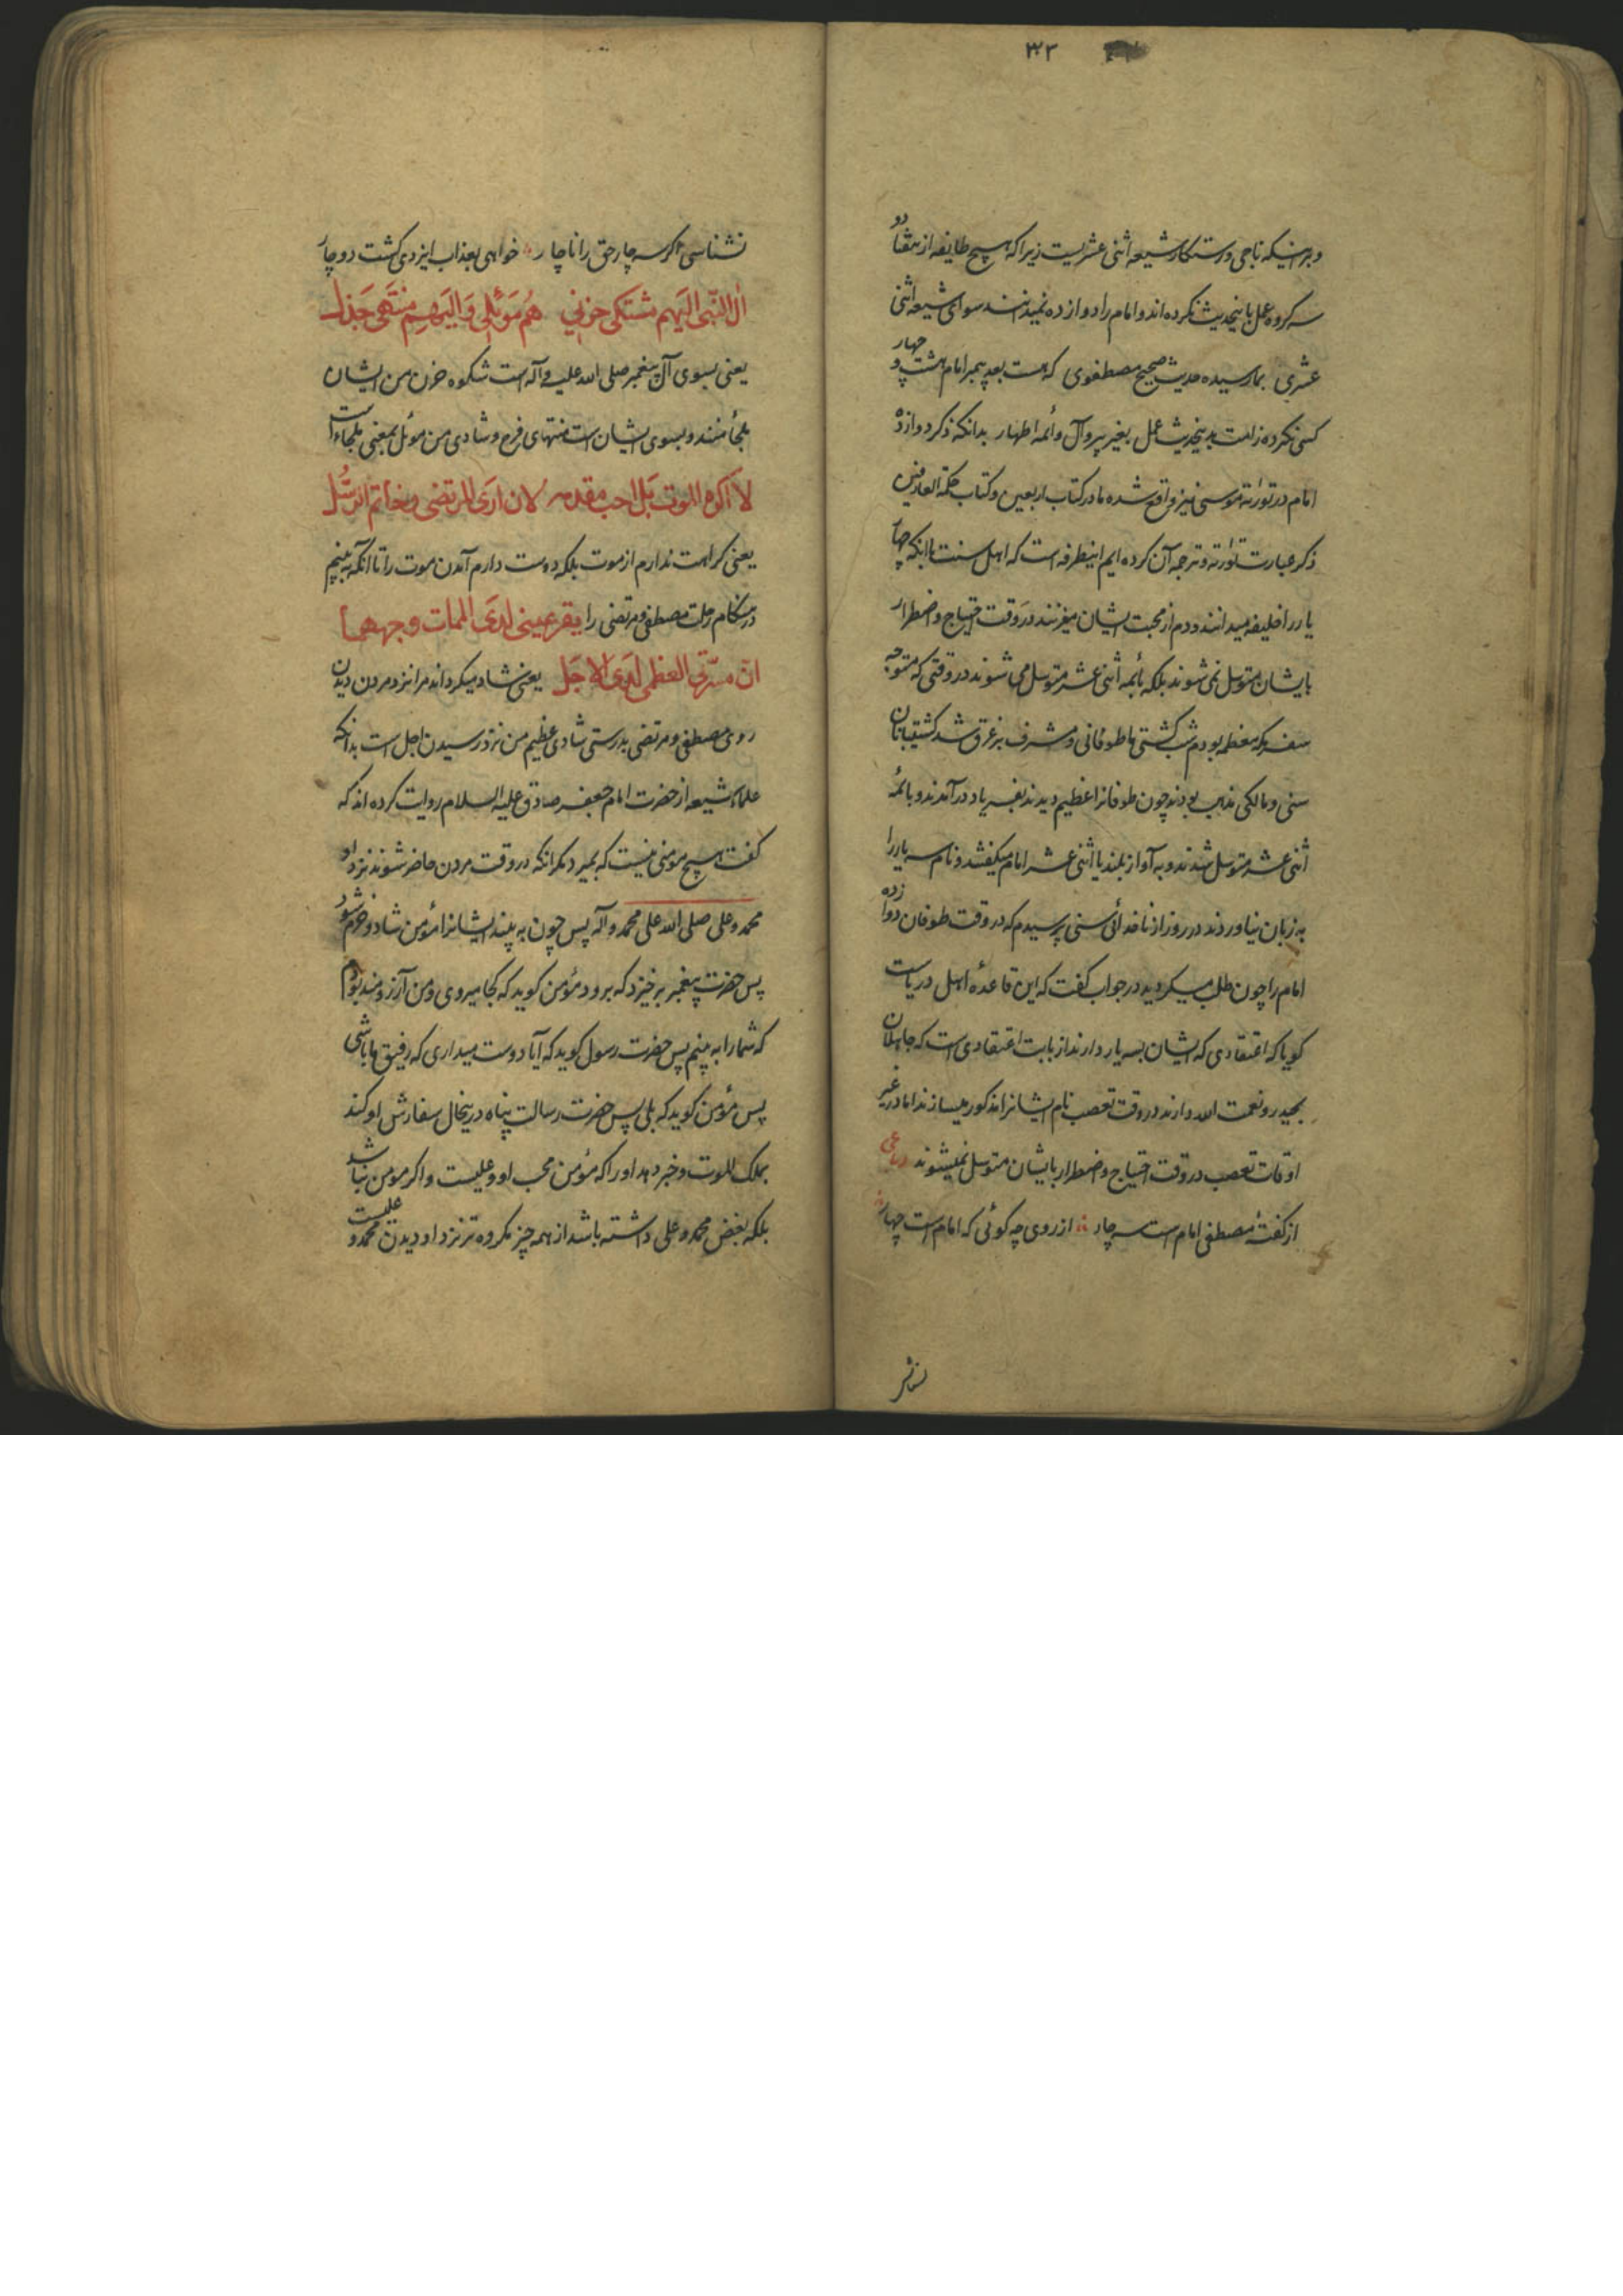 ۳۲
و برینکه ناجی و رستگار شیعه اثنی عشریست زیرا که هیچ طایفه از هفتاد و
سه کروه عمل باینحدیث نکرده اند و امام را دوازده نمیدانند سوای شیعه اثنی
عشری بما رسیده حدیث صحیح مصطفوی که هست بعد پیمبر امام هشت و چهار
کسی نکرده ز امت بدینحدیث عمل بغیر پیرو آل و ائمه اطهار بدانکه ذکر دوازده
امام در توراته موسی نیز واقع شده ما در کتاب اربعین و کتاب حکمة العارفین
ذکر عبارت توراته و ترجمه آن کرده ایم اینطرفه است که اهل سنت باانکه چهار
یار را خلیفه میدانند و دم از محبت ایشان میزنند در وقت احتیاج و اضطرار
بایشان متوسل نمی شوند بلکه بائمه اثنی عشر متوسل می شوند در وقتی که متوجه
سفر مکه معظمه بودم شب کشتی ما طوفانی و مشرف بر غرق شد کشتیبانان
سنی و مالکی مذهب بودند چون طوفانرا عظیم دیدند بفریاد درآمدند و بائمه
اثنی عشر متوسل شدند و به آواز بلند یا اثنی عشر امام میکفتند و نام سه یار را
به زبان نیاوردند در روز از ناخدائی سنی پرسیدم که در وقت طوفان دوازده
امام را چون طلب میکردید در جواب کفت که این قاعده اهل دریاست
کویا که اعتقادی که ایشان بسه یار دارند از بابت اعتقادی است که جاهلان
بحیدر و نعمت الله دارند در وقت تعصب نام ایشانرا مذکور میسازند اما در غیر
اوقات تعصب در وقت احتیاج و اضطرار بایشان متوسل نمیشوند رباعی
از کفتهٔ مصطفی امام است سه چار از روی چه کوئی که امام است چهار
نشناسی اکر سه چار حق را ناچار خواهی بعذاب ایزدی کشت دوچار
آل النبی الیهم مشتکی حزنی هم موئلی و الیهم منتهی جذل
یعنی بسوی آل پیغمبر صلی الله علیه و آله است شکوه حزن من ایشان
ملجأ منند و بسوی ایشان است منتهای فرح و شادی من موئل بمعنی ملجاء است
لا اکره الموت بل احب مقدمه لان اری المرتضی و خاتم الرسل
یعنی کراهت ندارم از موت بلکه دوست دارم آمدن موت را تا آنکه به بینم
در هنکام رحلت مصطفی و مرتضی را یقر عینی لدی الممات وجههما
ان مسرتی العظمی لدی الاجل یعنی شاد میکرداند مرا نزد مردن دیدن
روی مصطفی و مرتضی بدرستی شادی عظیم من نزد رسیدن اجل است بدانکه
علماء شیعه از حضرت امام جعفر صادق علیه السلام روایت کرده اند که
کفت هیچ مومنی نیست که بمیرد مکر انکه در وقت مردن حاضر شوند نزد او
محمد و علی صلی الله علی محمد و آله پس چون به بیند ایشانرا مؤمن شاد و خرم شود
پس حضرت پیغمبر برخیزد که برود مؤمن کوید که کجا میروی و من آرزومند بودم
که شما را به بینم پس حضرت رسول کوید که آیا دوست میداری که رفیق ما باشی
پس مؤمن کوید که بلی پس حضرت رسالت پناه درینحال سفارش او کند
بملک الموت و خبر دهد او را که مؤمن محب او و علیست و اکر مومن نباشد
بلکه بغض محمد و علی داشته باشد از همه چیز مکروه تر نزد او دیدن محمد و علیست